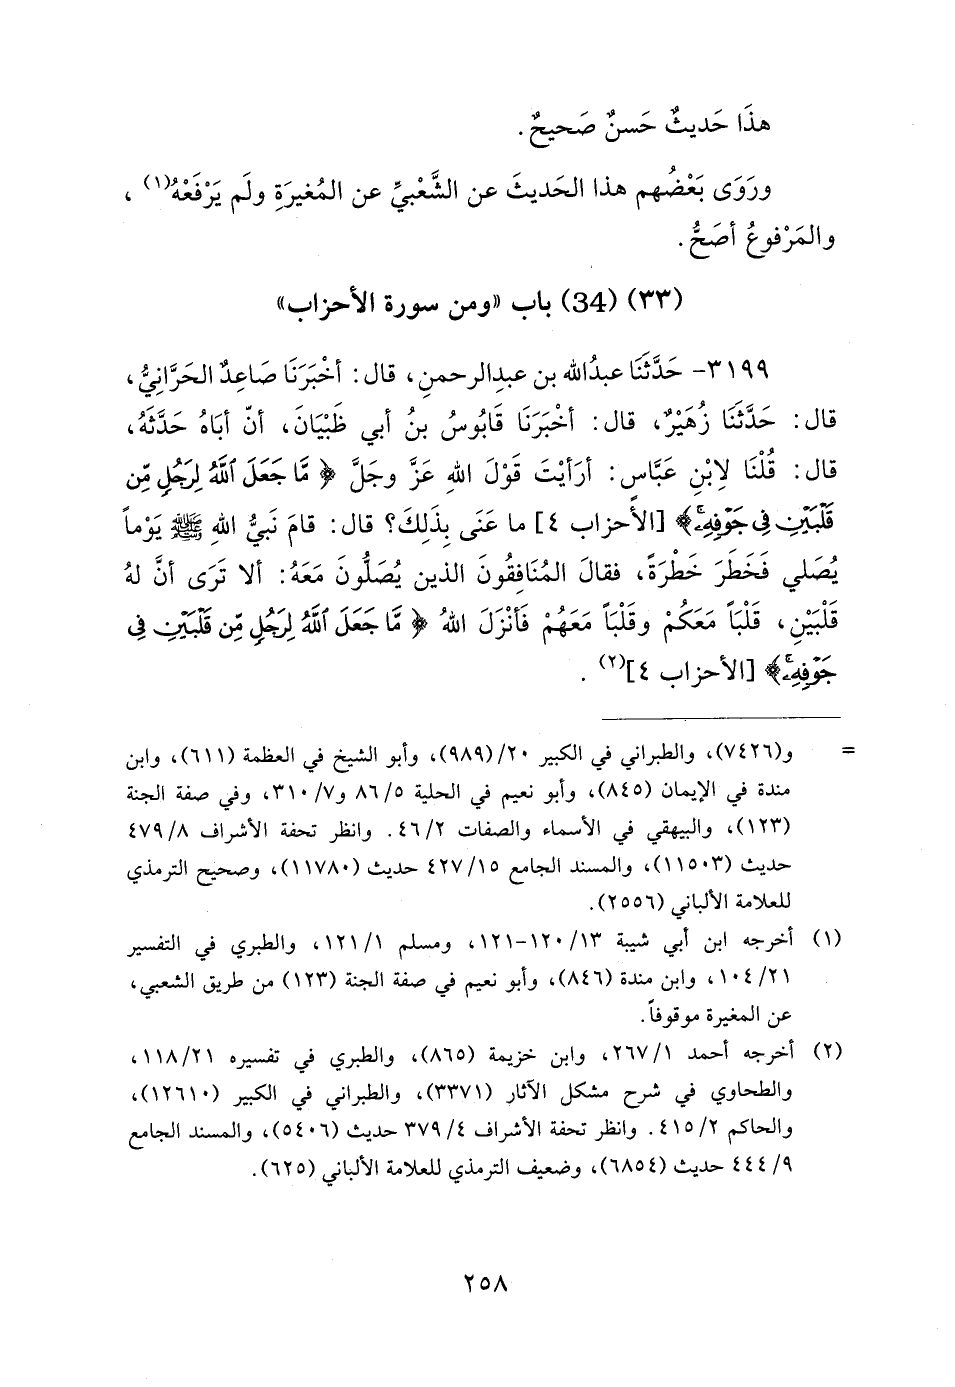 هذَا حَديثٌ حَسنٌ صَحيحٌ.
ورَوَى بَعْضُهم هذا الحَديثَ عن الشَّعْبيِّ عن المُغيرَةِ ولَم يَرْفَعْهُ(١)،
والمَرْفوعُ أصَحُّ.
(٣٣) (34) باب «ومن سورة الأحزاب»
٣١٩٩- حَدَّثنَا عبدُالله بن عبدِالرحمنِ، قال: أخْبَرَنَا صَاعِدٌ الحَرَّانِيُّ،
قال: حَدَّثنَا زُهَيْرٌ، قال: أخْبَرَنَا قَابُوسُ بنُ أبي ظَبْيَانَ، أنّ أبَاهُ حَدَّثَهُ،
قال: قُلْنَا لاِبْنِ عَبَّاسٍ: أرَأيْتَ قَوْلَ اللهِ عَزَّ وجَلَّ ﴿مَّا جَعَلَ ٱللَّهُ لِرَجُلٍ مِّن
قَلْبَيْنِ فِى جَوْفِهِۦۚ﴾ [الأحزاب ٤] ما عَنَى بِذَلِكَ؟ قال: قامَ نَبيُّ اللهِ ﷺ يَوْماً
يُصَلي فَخَطَرَ خَطْرَةً، فقالَ المُنَافِقُونَ الذين يُصَلُّونَ مَعَهُ: ألا تَرَى أنَّ لهُ
قَلْبَيْنِ، قَلْباً مَعَكُمْ وقَلْباً مَعَهُمْ فَأنْزَلَ اللهُ ﴿مَّا جَعَلَ ٱللَّهُ لِرَجُلٍ مِّن قَلْبَيْنِ فِى
جَوْفِهِۦۚ﴾ [الأحزاب ٤](٢).
= و(٧٤٢٦)، والطبراني في الكبير ٢٠/(٩٨٩)، وأبو الشيخ في العظمة (٦١١)، وابن
مندة في الإيمان (٨٤٥)، وأبو نعيم في الحلية ٨٦/٥ و٣١٠/٧، وفي صفة الجنة
(١٢٣)، والبيهقي في الأسماء والصفات ٤٦/٢. وانظر تحفة الأشراف ٤٧٩/٨
حديث (١١٥٠٣)، والمسند الجامع ٤٢٧/١٥ حديث (١١٧٨٠)، وصحيح الترمذي
للعلامة الألباني (٢٥٥٦).
(١) أخرجه ابن أبي شيبة ١٢٠/١٣-١٢١، ومسلم ١٢١/١، والطبري في التفسير
١٠٤/٢١، وابن مندة (٨٤٦)، وأبو نعيم في صفة الجنة (١٢٣) من طريق الشعبي،
عن المغيرة موقوفاً.
(٢) أخرجه أحمد ٢٦٧/١، وابن خزيمة (٨٦٥)، والطبري في تفسيره ١١٨/٢١،
والطحاوي في شرح مشكل الآثار (٣٣٧١)، والطبراني في الكبير (١٢٦١٠)،
والحاكم ٤١٥/٢. وانظر تحفة الأشراف ٣٧٩/٤ حديث (٥٤٠٦)، والمسند الجامع
٤٤٤/٩ حديث (٦٨٥٤)، وضعيف الترمذي للعلامة الألباني (٦٢٥).
٢٥٨